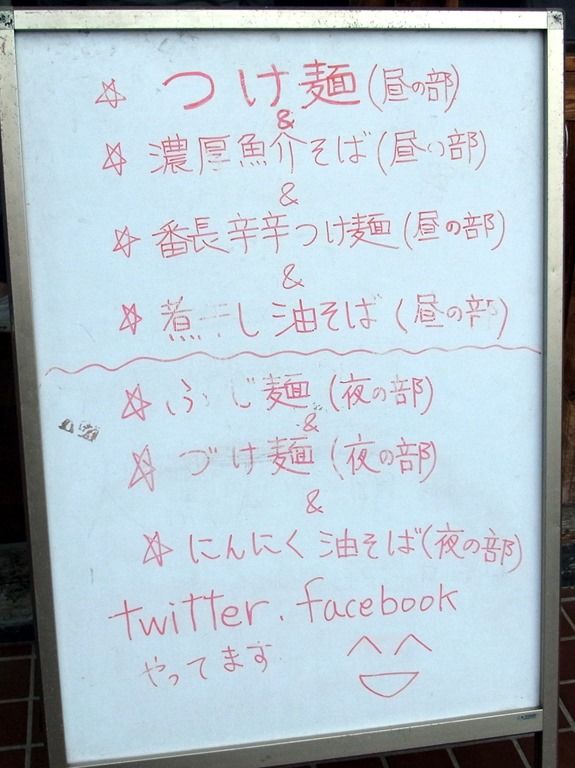 ☆ つけ麺 (昼の部)
&
☆ 濃厚魚介そば (昼の部)
&
☆ 番長辛辛つけ麺 (昼の部)
&
☆ 煮干し油そば (昼の部)
☆ ふじ麺 (夜の部)
&
☆ づけ麺 (夜の部)
&
☆ にんにく油そば (夜の部)
twitter. facebook
やってます